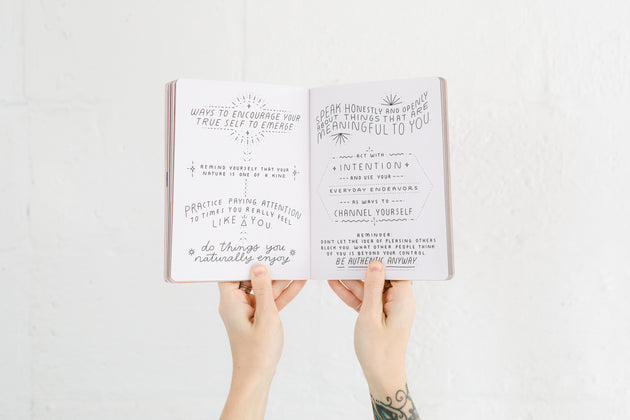 WAYS TO ENCOURAGE YOUR
TRUE SELF TO EMERGE
REMIND YOURSELF THAT YOUR
NATURE IS ONE OF A KIND.
PRACTICE PAYING ATTENTION
TO TIMES YOU REALLY FEEL
LIKE YOU.
do things you
naturally enjoy
SPEAK HONESTLY AND OPENLY
ABOUT THINGS THAT ARE
MEANINGFUL TO YOU.
ACT WITH
INTENTION
AND USE YOUR
EVERYDAY ENDEAVORS
AS WAYS TO
CHANNEL YOURSELF
REMINDER:
DON'T LET THE IDEA OF PLEASING OTHERS
BLOCK YOU. WHAT OTHER PEOPLE THINK
OF YOU IS BEYOND YOUR CONTROL.
BE AUTHENTIC ANYWAY